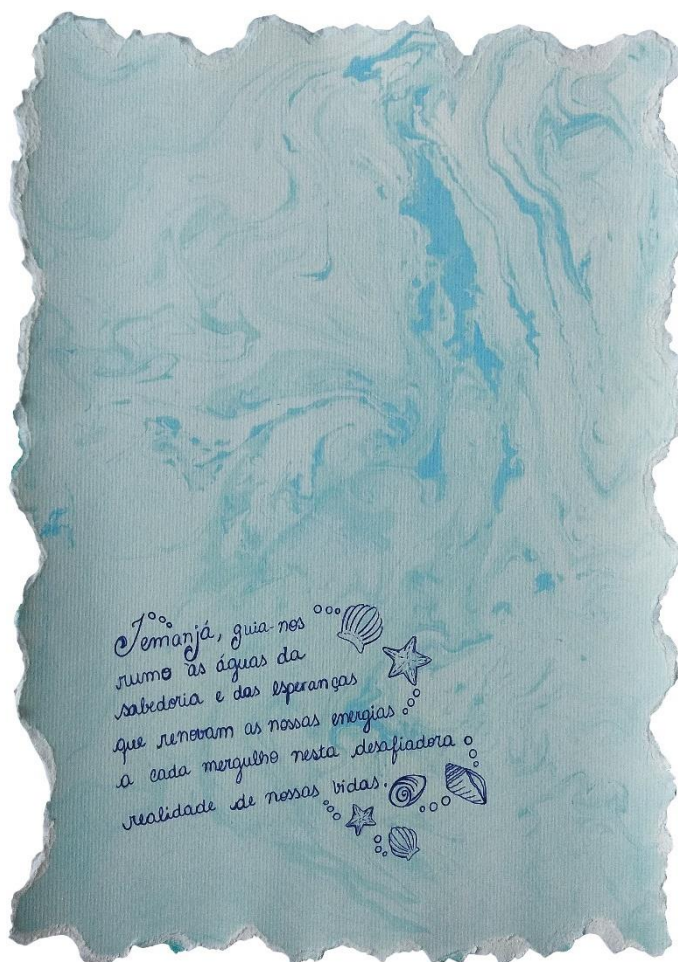 Iemanjá, guia-nos
rumo às águas da
sabedoria e das esperanças
que renovam as nossas energias
a cada mergulho nesta desafiadora
realidade de nossas vidas.